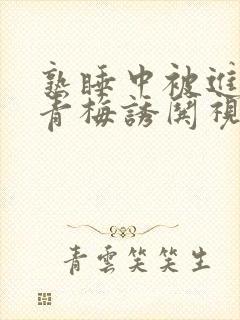 熟睡中被進
青梅誘関視
青雲笑笑生